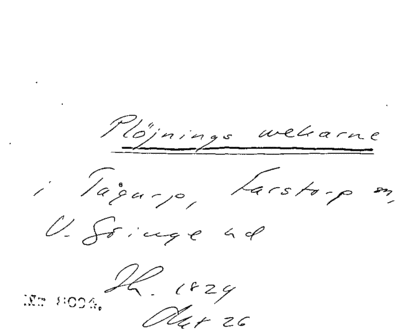 Plöjnings wekarne
i Tågarp, Farstorp sn,
V. Göinge hd
Th. 1829
Okt 26
Nr 8004.